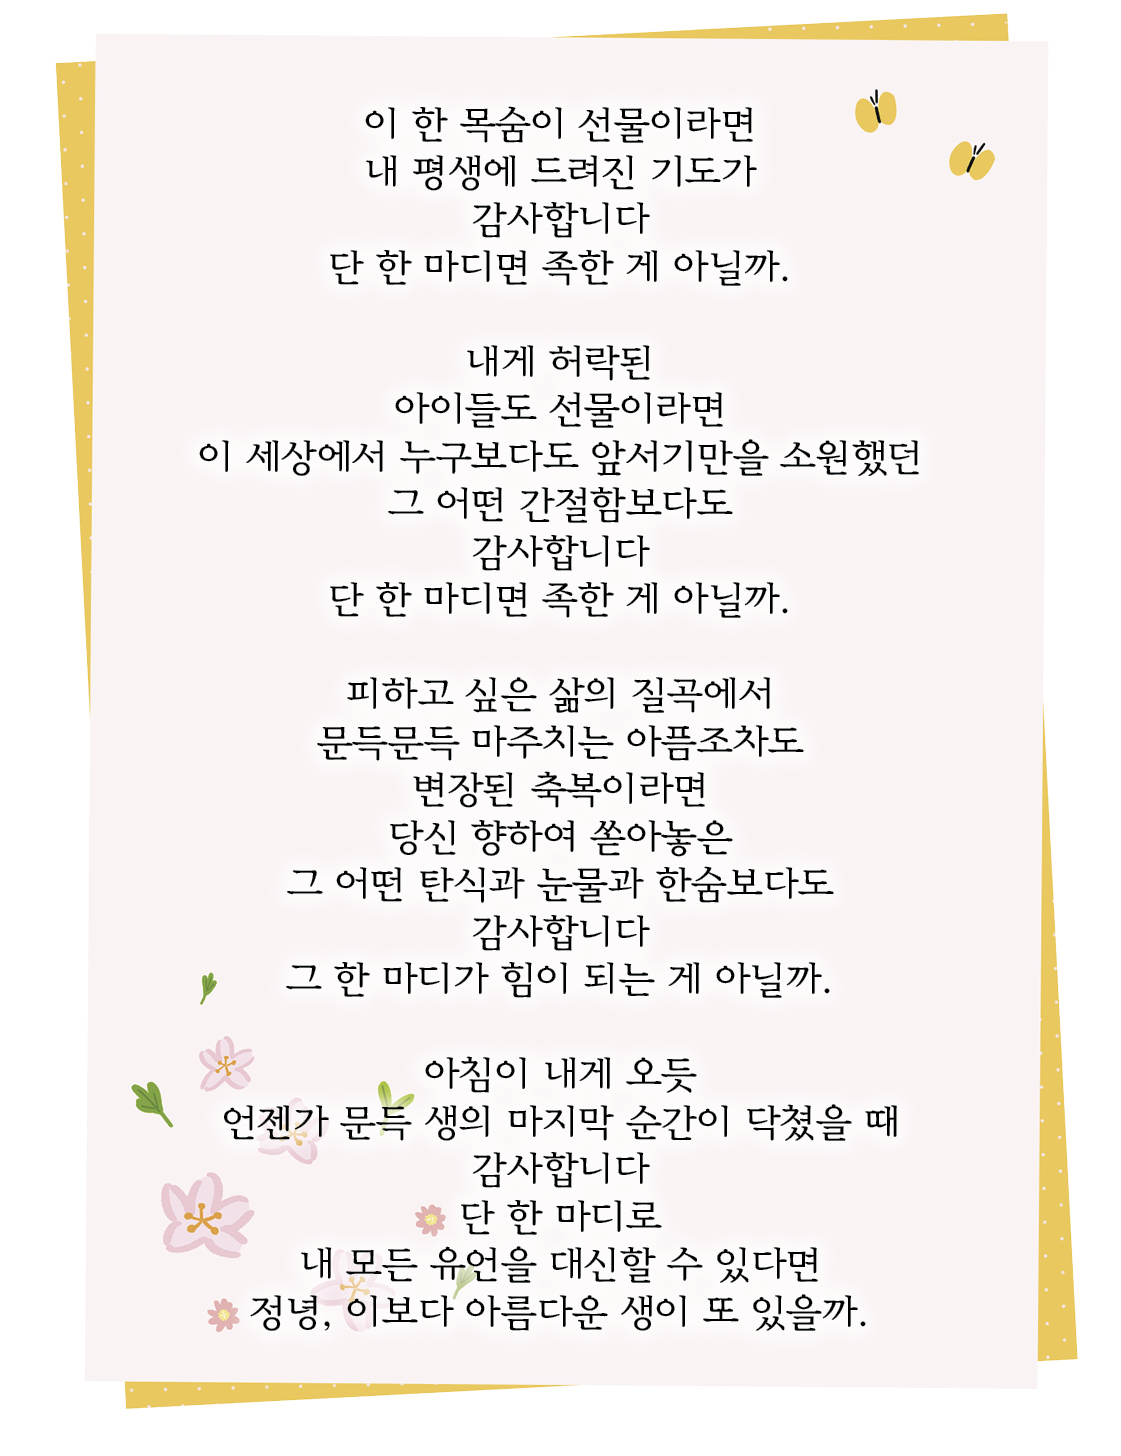 이 한 목숨이 선물이라면
내 평생에 드려진 기도가
감사합니다
단 한 마디면 족한 게 아닐까.
내게 허락된
아이들도 선물이라면
이 세상에서 누구보다도 앞서기만을 소원했던
그 어떤 간절함보다도
감사합니다
단 한 마디면 족한 게 아닐까.
피하고 싶은 삶의 질곡에서
문득문득 마주치는 아픔조차도
변장된 축복이라면
당신 향하여 쏟아놓은
그 어떤 탄식과 눈물과 한숨보다도
감사합니다
그 한 마디가 힘이 되는 게 아닐까.
아침이 내게 오듯
언젠가 문득 생의 마지막 순간이 닥쳤을 때
감사합니다
단 한 마디로
내 모든 유언을 대신할 수 있다면
정녕, 이보다 아름다운 생이 또 있을까.